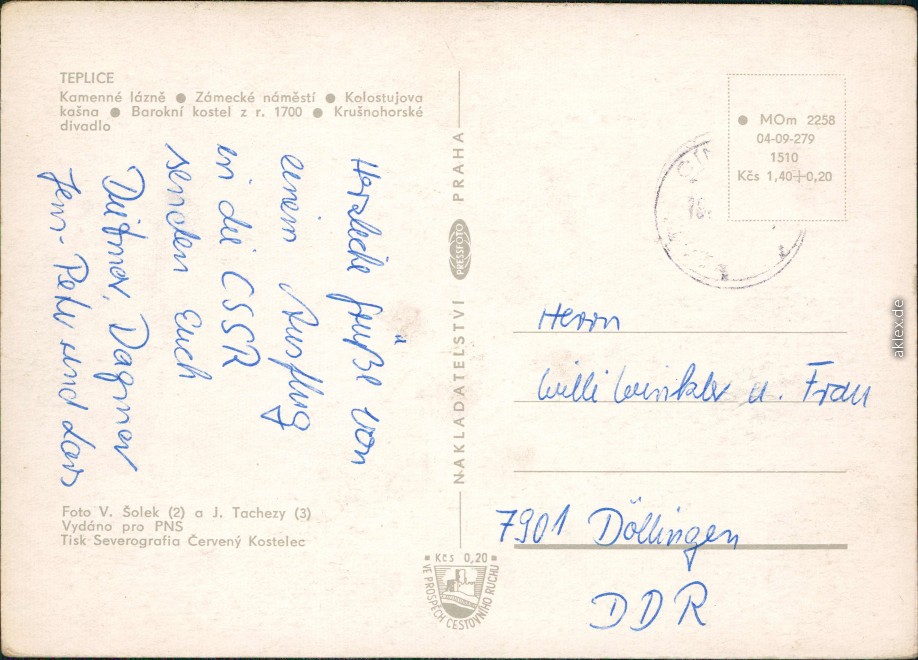 TEPLICE
Kamenné lázně ● Zámecké náměstí ● Kolostujova
kašna ● Barokní kostel z r. 1700 ● Krušnohorské
divadlo
Herzliche Grüße von
einem Ausflug
in die CSSR
senden Euch
Dietmar, Dagmar
Jens-Peter und Lars
Foto V. Šolek (2) a J. Tachezy (3)
Vydáno pro PNS
Tisk Severografia Červený Kostelec
NAKLADATELSTVÍ PRESSFOTO PRAHA
● Kčs 0,20 ●
VE PROSPĚCH CESTOVNÍHO RUCHU
● MOm 2258
04-09-279
1510
Kčs 1,40+0,20
Herrn
Willi Winkler u. Frau
7901 Döllingen
DDR
aklex.de